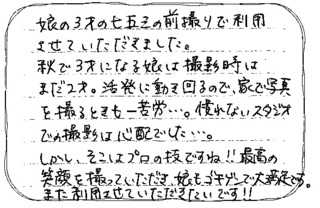 娘の3才の七五三の前撮りで利用
させていただきました。
秋で3才になる娘は撮影時は
まだ2才。活発に動き回るので、家で写真
を撮るときも一苦労…。慣れないスタジオ
での撮影は心配でした…。
しかし、そこはプロの技ですね!!最高の
笑顔を撮っていただき、娘もゴキゲンで大満足です。
また利用させていただきたいです!!